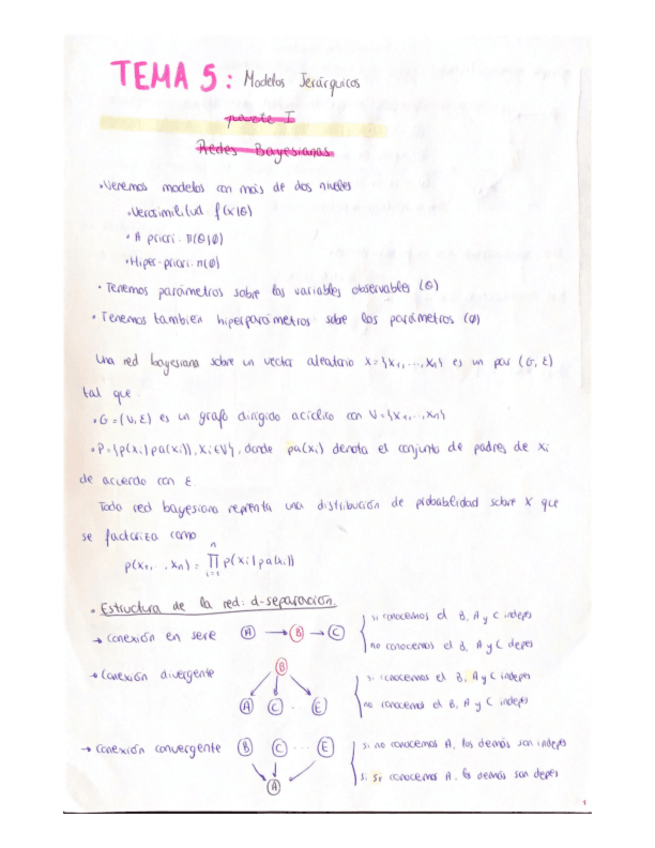 TEMA 5: Modelos Jerárquicos
parte I
Redes Bayesianas
• Veremos modelos con más de dos niveles
• Verosimilitud f(x|θ)
• A priori: π(θ|φ)
• Hiper-priori: π(φ)
• Tenemos parámetros sobre las variables observables (θ)
• Tenemos también hiperparámetros sobre los parámetros (φ)
Una red bayesiana sobre un vector aleatorio X={X₁,...,Xₙ} es un par (G, E)
tal que
• G=(V, E) es un grafo dirigido acíclico con V={X₁,...,Xₙ}
• P={p(xᵢ|pa(xᵢ)), Xᵢ∈V}, donde pa(xᵢ) denota el conjunto de padres de Xᵢ
de acuerdo con E
Toda red bayesiana reprenta una distribución de probabilidad sobre X que
se factoriza como
p(x₁,...,xₙ) = ∏ⁿᵢ₌₁ p(xᵢ|pa(xᵢ))
• Estructura de la red: d-separación.
→ Conexión en serie A → B → C si conocemos el B, A y C indeps
no conocemos el B, A y C depes
→ Conexión divergente B A C ... E si conocemos el B, A y C indeps
no conocemos el B, A y C indeps
→ Conexión convergente B C ... E A si no conocemos A, los demás son indeps
si sí conocemos A, los demás son depes
1